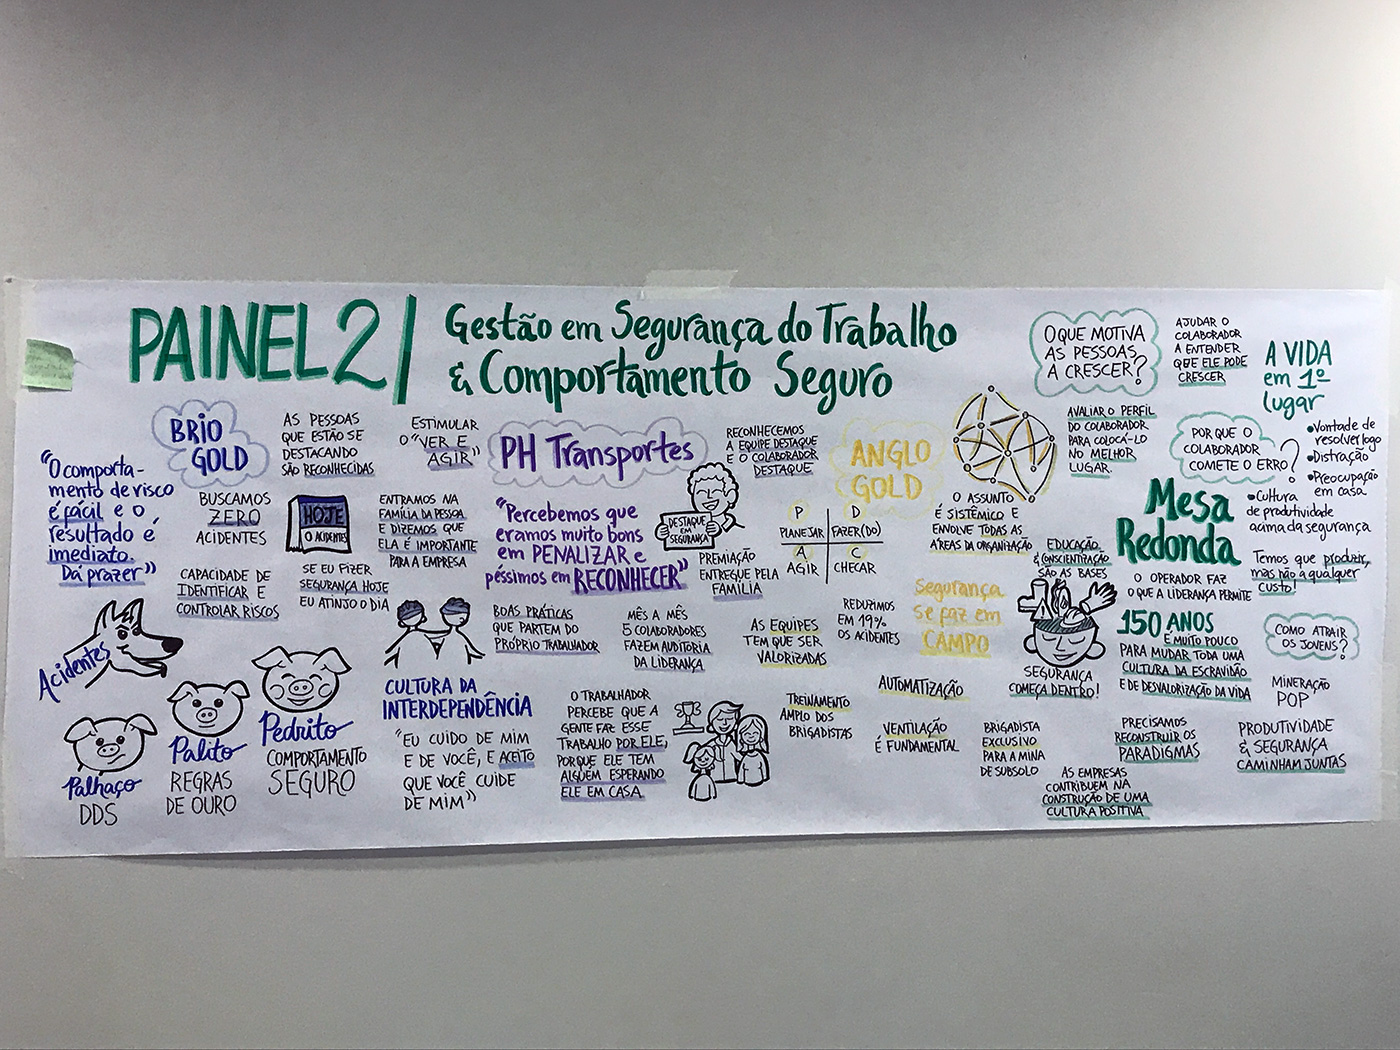 PAINEL 2/
Gestão em Segurança do Trabalho
& Comportamento Seguro
BRIO
GOLD
"O comporta-
mento de risco
é fácil e o
resultado é
imediato.
Dá prazer"
AS PESSOAS
QUE ESTÃO SE
DESTACANDO
SÃO RECONHECIDAS
ESTIMULAR
O "VER E
AGIR"
BUSCAMOS
ZERO
ACIDENTES
HOJE
0 ACIDENTES
ENTRAMOS NA
FAMÍLIA DA PESSOA
E DIZEMOS QUE
ELA É IMPORTANTE
PARA A EMPRESA
CAPACIDADE DE
IDENTIFICAR E
CONTROLAR RISCOS
SE EU FIZER
SEGURANÇA HOJE
EU ATINJO O DIA
Acidentes
Palhaço
DDS
Palito
REGRAS
DE OURO
Pedrito
COMPORTAMENTO
SEGURO
CULTURA DA
INTERDEPENDÊNCIA
"EU CUIDO DE MIM
E DE VOCÊ, E ACEITO
QUE VOCÊ CUIDE
DE MIM"
PH Transportes
"Percebemos que
eramos muito bons
em PENALIZAR e
péssimos em RECONHECER"
RECONHECEMOS
A EQUIPE DESTAQUE
E O COLABORADOR
DESTAQUE
DESTAQUE
EM
SEGURANÇA
PREMIAÇÃO
ENTREGUE PELA
FAMÍLIA
BOAS PRÁTICAS
QUE PARTEM DO
PRÓPRIO TRABALHADOR
MÊS A MÊS
5 COLABORADORES
FAZEM AUDITORIA
DA LIDERANÇA
O TRABALHADOR
PERCEBE QUE A
GENTE FAZ ESSE
TRABALHO POR ELE,
PORQUE ELE TEM
ALGUÉM ESPERANDO
ELE EM CASA.
ANGLO
GOLD
P
PLANEJAR
D
FAZER(DO)
A
AGIR
C
CHECAR
O ASSUNTO
É SISTÊMICO E
ENVOLVE TODAS AS
ÁREAS DA ORGANIZAÇÃO
AS EQUIPES
TEM QUE SER
VALORIZADAS
REDUZIMOS
EM 19%
OS ACIDENTES
Segurança
se faz em
CAMPO
EDUCAÇÃO
& CONSCIENTIZAÇÃO
SÃO AS BASES
SEGURANÇA
COMEÇA DENTRO!
TREINAMENTO
AMPLO DOS
BRIGADISTAS
AUTOMATIZAÇÃO
VENTILAÇÃO
É FUNDAMENTAL
BRIGADISTA
EXCLUSIVO
PARA A MINA
DE SUBSOLO
O QUE MOTIVA
AS PESSOAS
A CRESCER?
AJUDAR O
COLABORADOR
A ENTENDER
QUE ELE PODE
CRESCER
A VIDA
em 1º
lugar
AVALIAR O PERFIL
DO COLABORADOR
PARA COLOCÁ-LO
NO MELHOR
LUGAR.
POR QUE O
COLABORADOR
COMETE O ERRO?
•Vontade de
resolver logo
•Distração
•Preocupação
em casa
•Cultura
de produtividade
acima da segurança
Mesa
Redonda
O OPERADOR FAZ
O QUE A LIDERANÇA PERMITE
Temos que produzir,
mas não a qualquer
custo!
150 ANOS
É MUITO POUCO
PARA MUDAR TODA UMA
CULTURA DA ESCRAVIDÃO
E DE DESVALORIZAÇÃO DA VIDA
COMO ATRAIR
OS JOVENS?
MINERAÇÃO
POP
PRECISAMOS
RECONSTRUIR OS
PARADIGMAS
PRODUTIVIDADE
& SEGURANÇA
CAMINHAM JUNTAS
AS EMPRESAS
CONTRIBUEM NA
CONSTRUÇÃO DE UMA
CULTURA POSITIVA